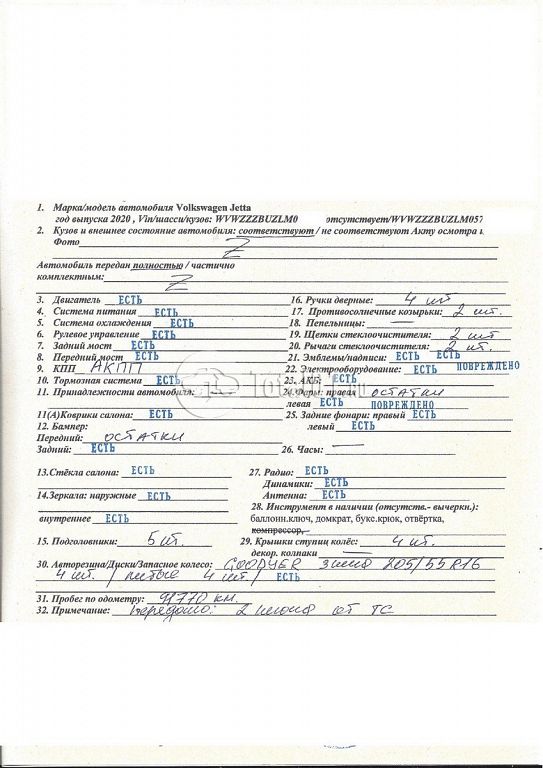 1. Марка/модель автомобиля Volkswagen Jetta
год выпуска 2020 , Vin/шасси/кузов: WVWZZZBUZLM0 отсутствует/WVWZZZBUZLM057
2. Кузов и внешнее состояние автомобиля: соответствуют / не соответствуют Акту осмотра и
Фото Z
Автомобиль передан полностью / частично
комплектным: Z
3. Двигатель ЕСТЬ 16. Ручки дверные: 4 шт
4. Система питания ЕСТЬ 17. Противосолнечные козырьки: 2 шт.
5. Система охлаждения ЕСТЬ 18. Пепельницы: —
6. Рулевое управление ЕСТЬ 19. Щетки стеклоочистителя: 2 шт
7. Задний мост ЕСТЬ 20. Рычаги стеклоочистителя: 2 шт.
8. Передний мост ЕСТЬ 21. Эмблемы/надписи: ЕСТЬ ЕСТЬ
9. КПП АКПП 22. Электрооборудование: ЕСТЬ ПОВРЕЖДЕНО
10. Тормозная система ЕСТЬ 23. АКБ: ЕСТЬ
11. Принадлежности автомобиля: — 24. Фары: правая остатки
левая ЕСТЬ ПОВРЕЖДЕНО
11(А)Коврики салона: ЕСТЬ 25. Задние фонари: правый ЕСТЬ
12. Бампер: левый ЕСТЬ
Передний: остатки
Задний: ЕСТЬ 26. Часы: —
13.Стёкла салона: ЕСТЬ 27. Радио: ЕСТЬ
Динамики: ЕСТЬ
14.Зеркала: наружные ЕСТЬ Антенна: ЕСТЬ
28. Инструмент в наличии (отсутств.- вычеркн.):
внутреннее ЕСТЬ баллонн.ключ, домкрат, букс.крюк, отвёртка,
компрессор,
15. Подголовники: 5 шт. 29. Крышки ступиц колёс: 4 шт.
декор. колпаки —
30. Авторезина/Диски/Запасное колесо: GOODYER зима 205/55 R16
4 шт. / литые 4 шт. / ЕСТЬ
31. Пробег по одометру: 91770 км.
32. Примечание: передано: 2 ключа от ТС